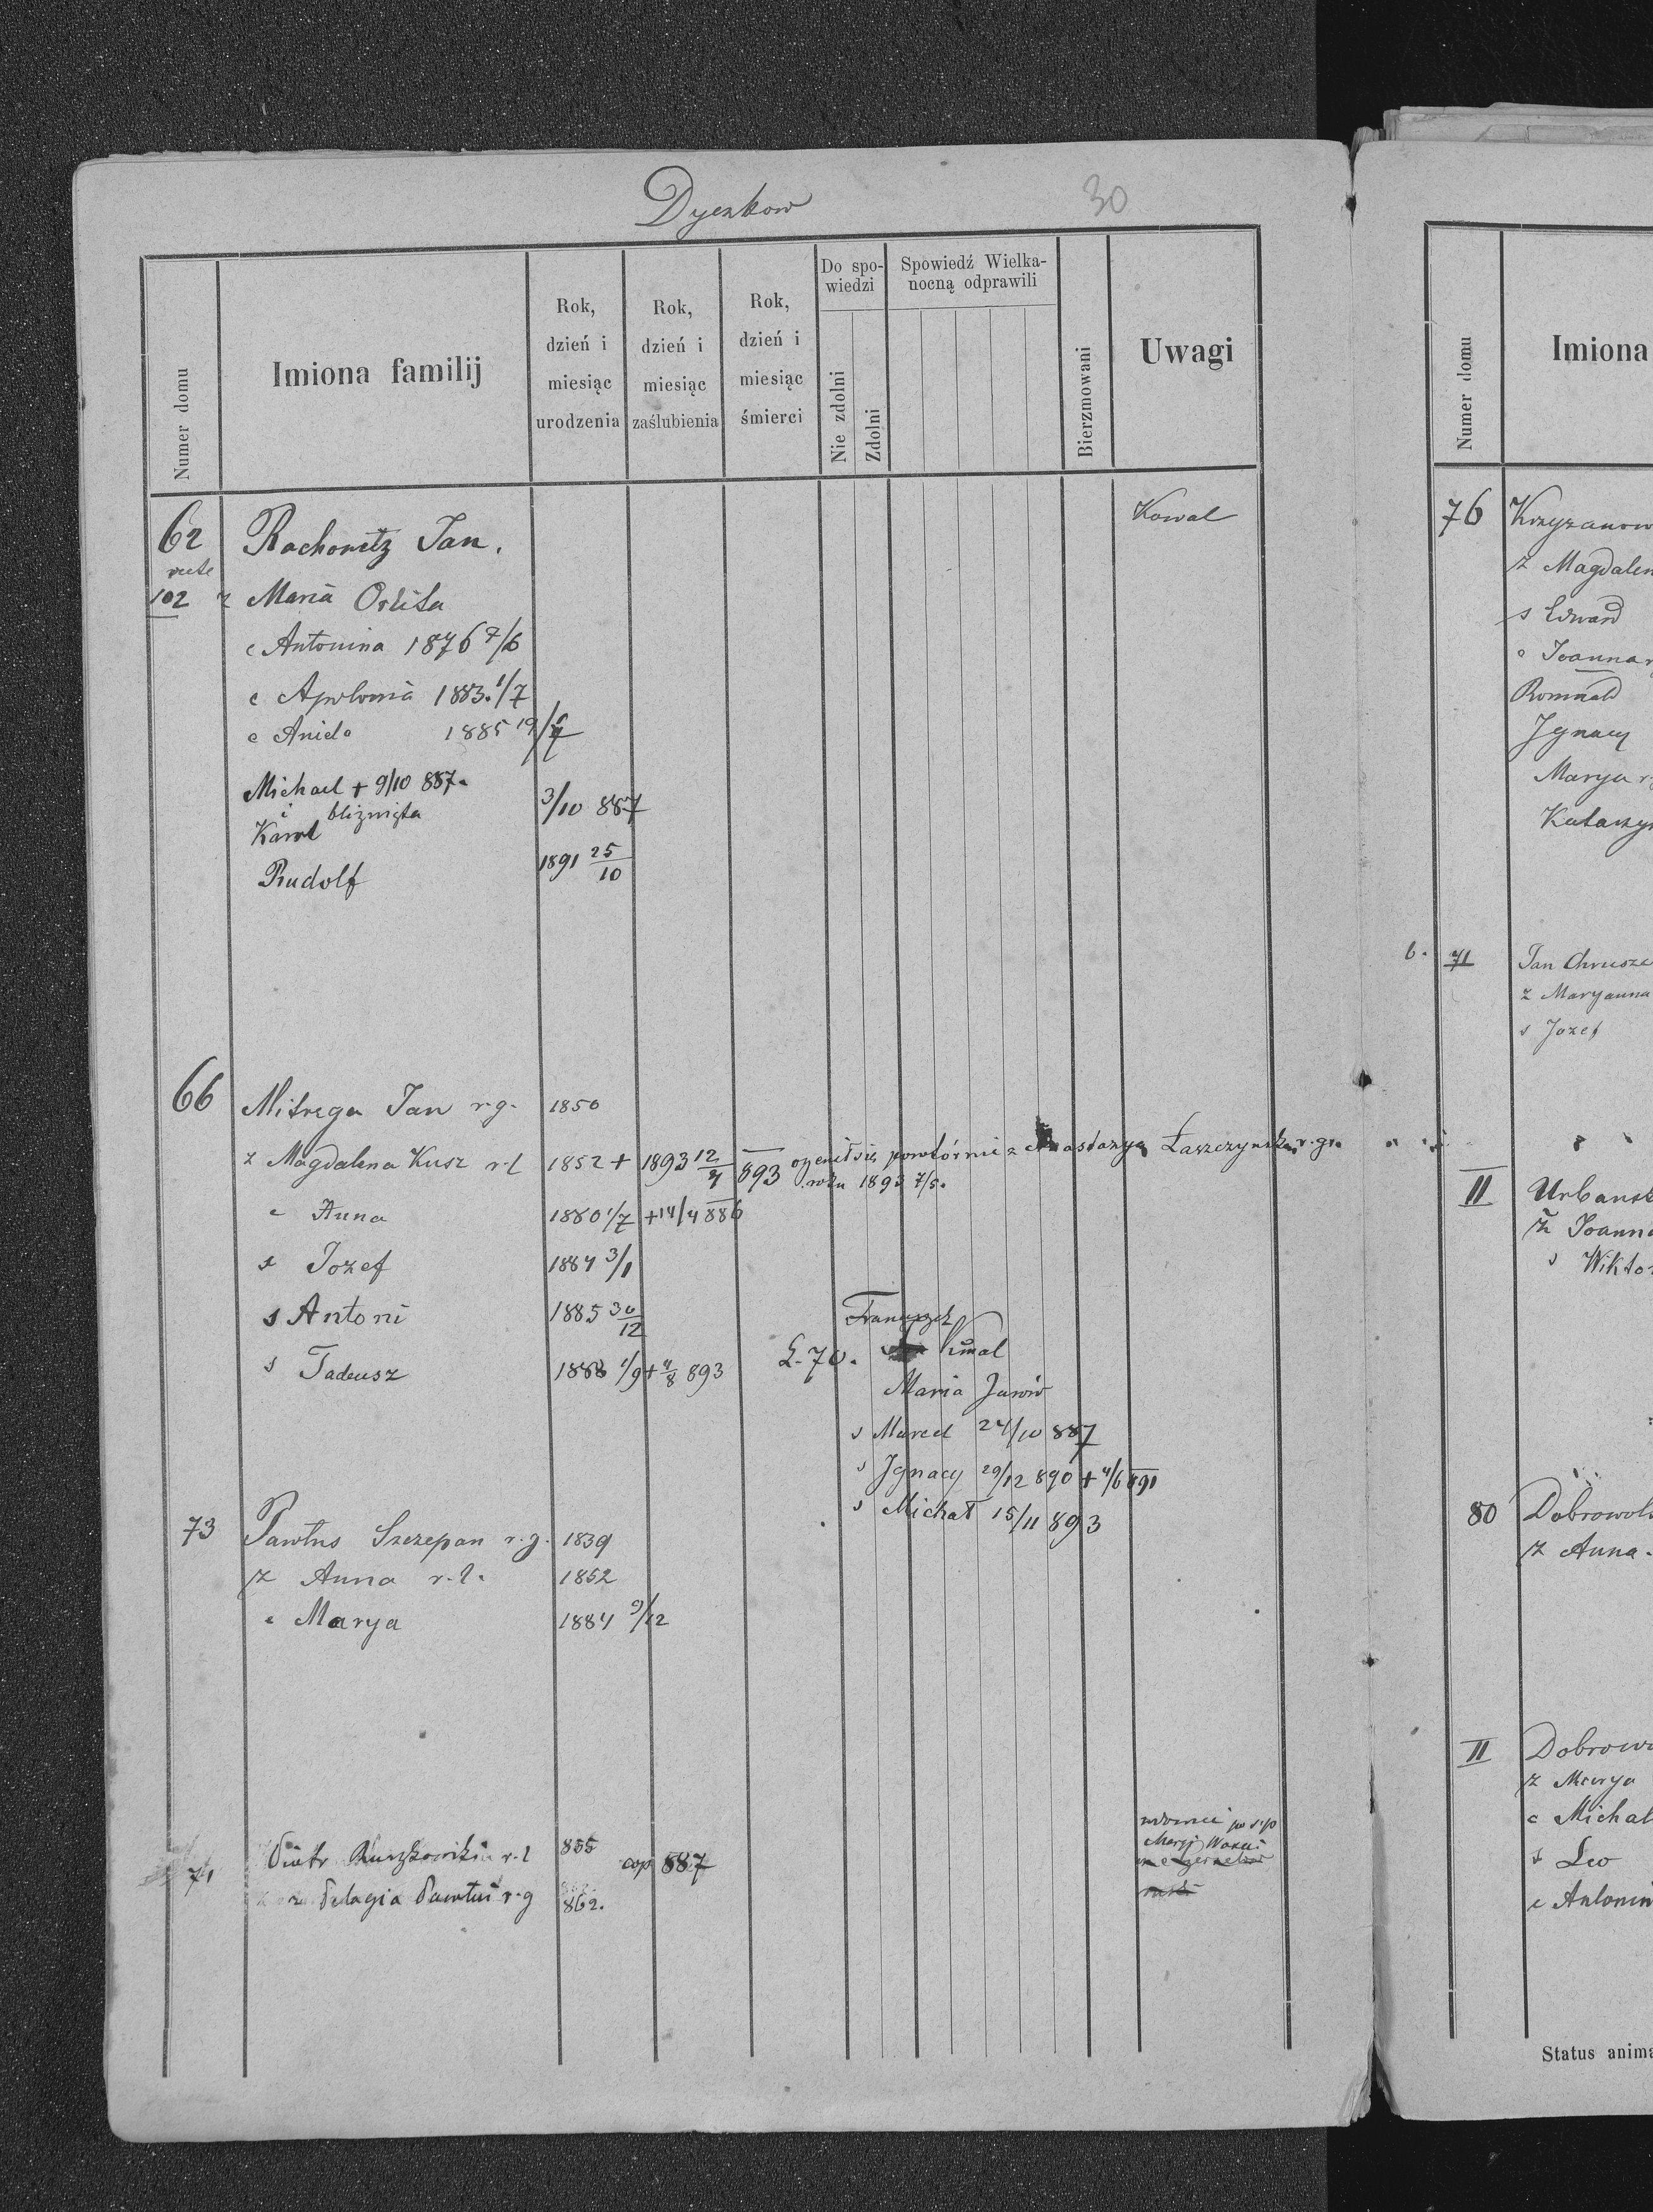 Dyczkow
30
Numer domu
Imiona familij
Rok, dzień i miesiąc urodzenia
Rok, dzień i miesiąc zaślubienia
Rok, dzień i miesiąc śmierci
Do spo-wiedzi
Nie zdolni
Zdolni
Spowiedź Wielka-nocną odprawili
Bierzmowani
Uwagi
62 Rachowitz Jan. Kowal
102 z Maria
c Antonina 1876 7/6
c Apolonia 1883. 1/7
c Aniela 1885 19/
Michael + 9/10 887.
i bliznięta 3/10 887
Karol
Rudolf 1891 25/10
66 Mitrega Jan r.g. 1850
z Magdalena Kusz r.l 1852 + 1893 12/ 893 ożenił się powtórnie z Anastazya Łaszczynska r.gr.
roku 1893 7/5.
c Anna 1880 1/7 + 14/4 886
s Jozef 1884 3/1
s Antoni 1885 30/12
s Tadeusz 1888 1/9 + 4/8 893
L. 70. Franciszek Kmal
Maria
s Marcel 24/10 887
s Ignacy 29/12 890 + 4/6 891
s Michał 15/11 893
73 Pawlus Szczepan r.g. 1839
z Anna r.l. 1852
c Marya 1884 9/12
71 Piotr r.l 855 cop 887
wdowiec po s.p
Maryi
z Pelagia r.g 862.
Numer domu
Imiona
76 Krzyzanow
z Magdalen
s Edward
c Joanna
Romuald
Ignacy
Marya
Katarzy
6. 71 Jan Chrusz
z Maryanna
s Jozef
II Urbansk
z Joanna
s Wiktor
80 Dobrowols
z Anna.
II Dobrow
z Marya
c Michal
s Leo
c Antonin
Status anima